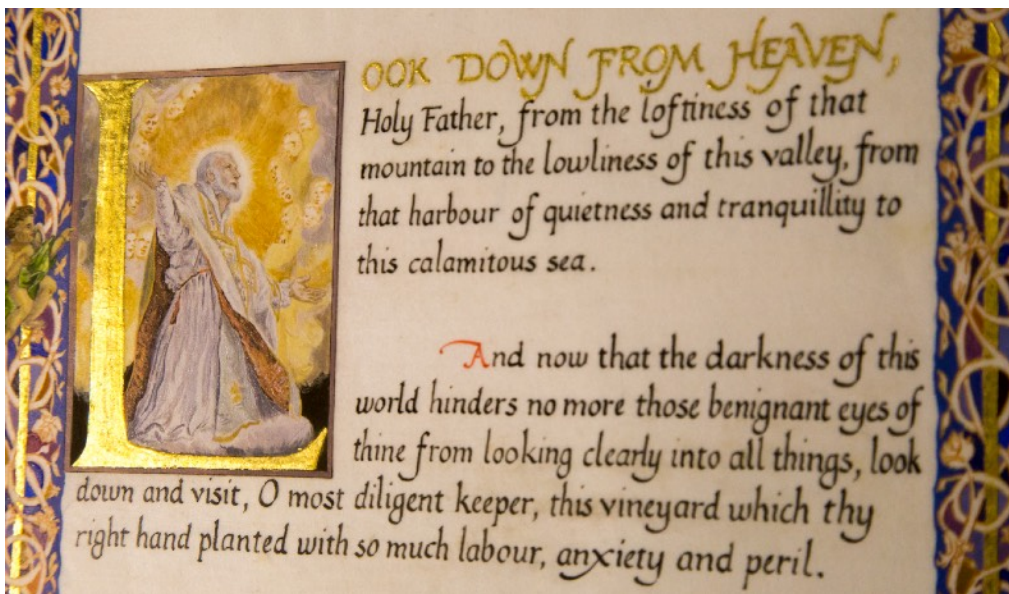 LOOK DOWN FROM HEAVEN,
Holy Father, from the loftiness of that
mountain to the lowliness of this valley, from
that harbour of quietness and tranquillity to
this calamitous sea.
And now that the darkness of this
world hinders no more those benignant eyes of
thine from looking clearly into all things, look
down and visit, O most diligent keeper, this vineyard which thy
right hand planted with so much labour, anxiety and peril.